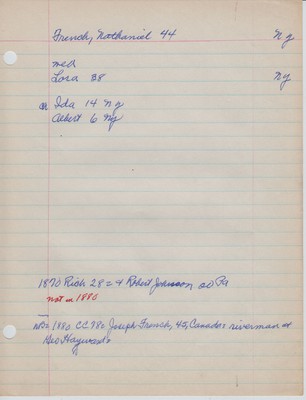 French, Nathaniel 44 Ny
med
Lora 38 Ny
ch Ida 14 Ny
Albert 6 Ny
1870 Rich 28=4 Robert Johnson 20 Pa
not in 1880
NB= 1880 CC 98= Joseph French, 45, Canada= riverman at
Geo Haywards